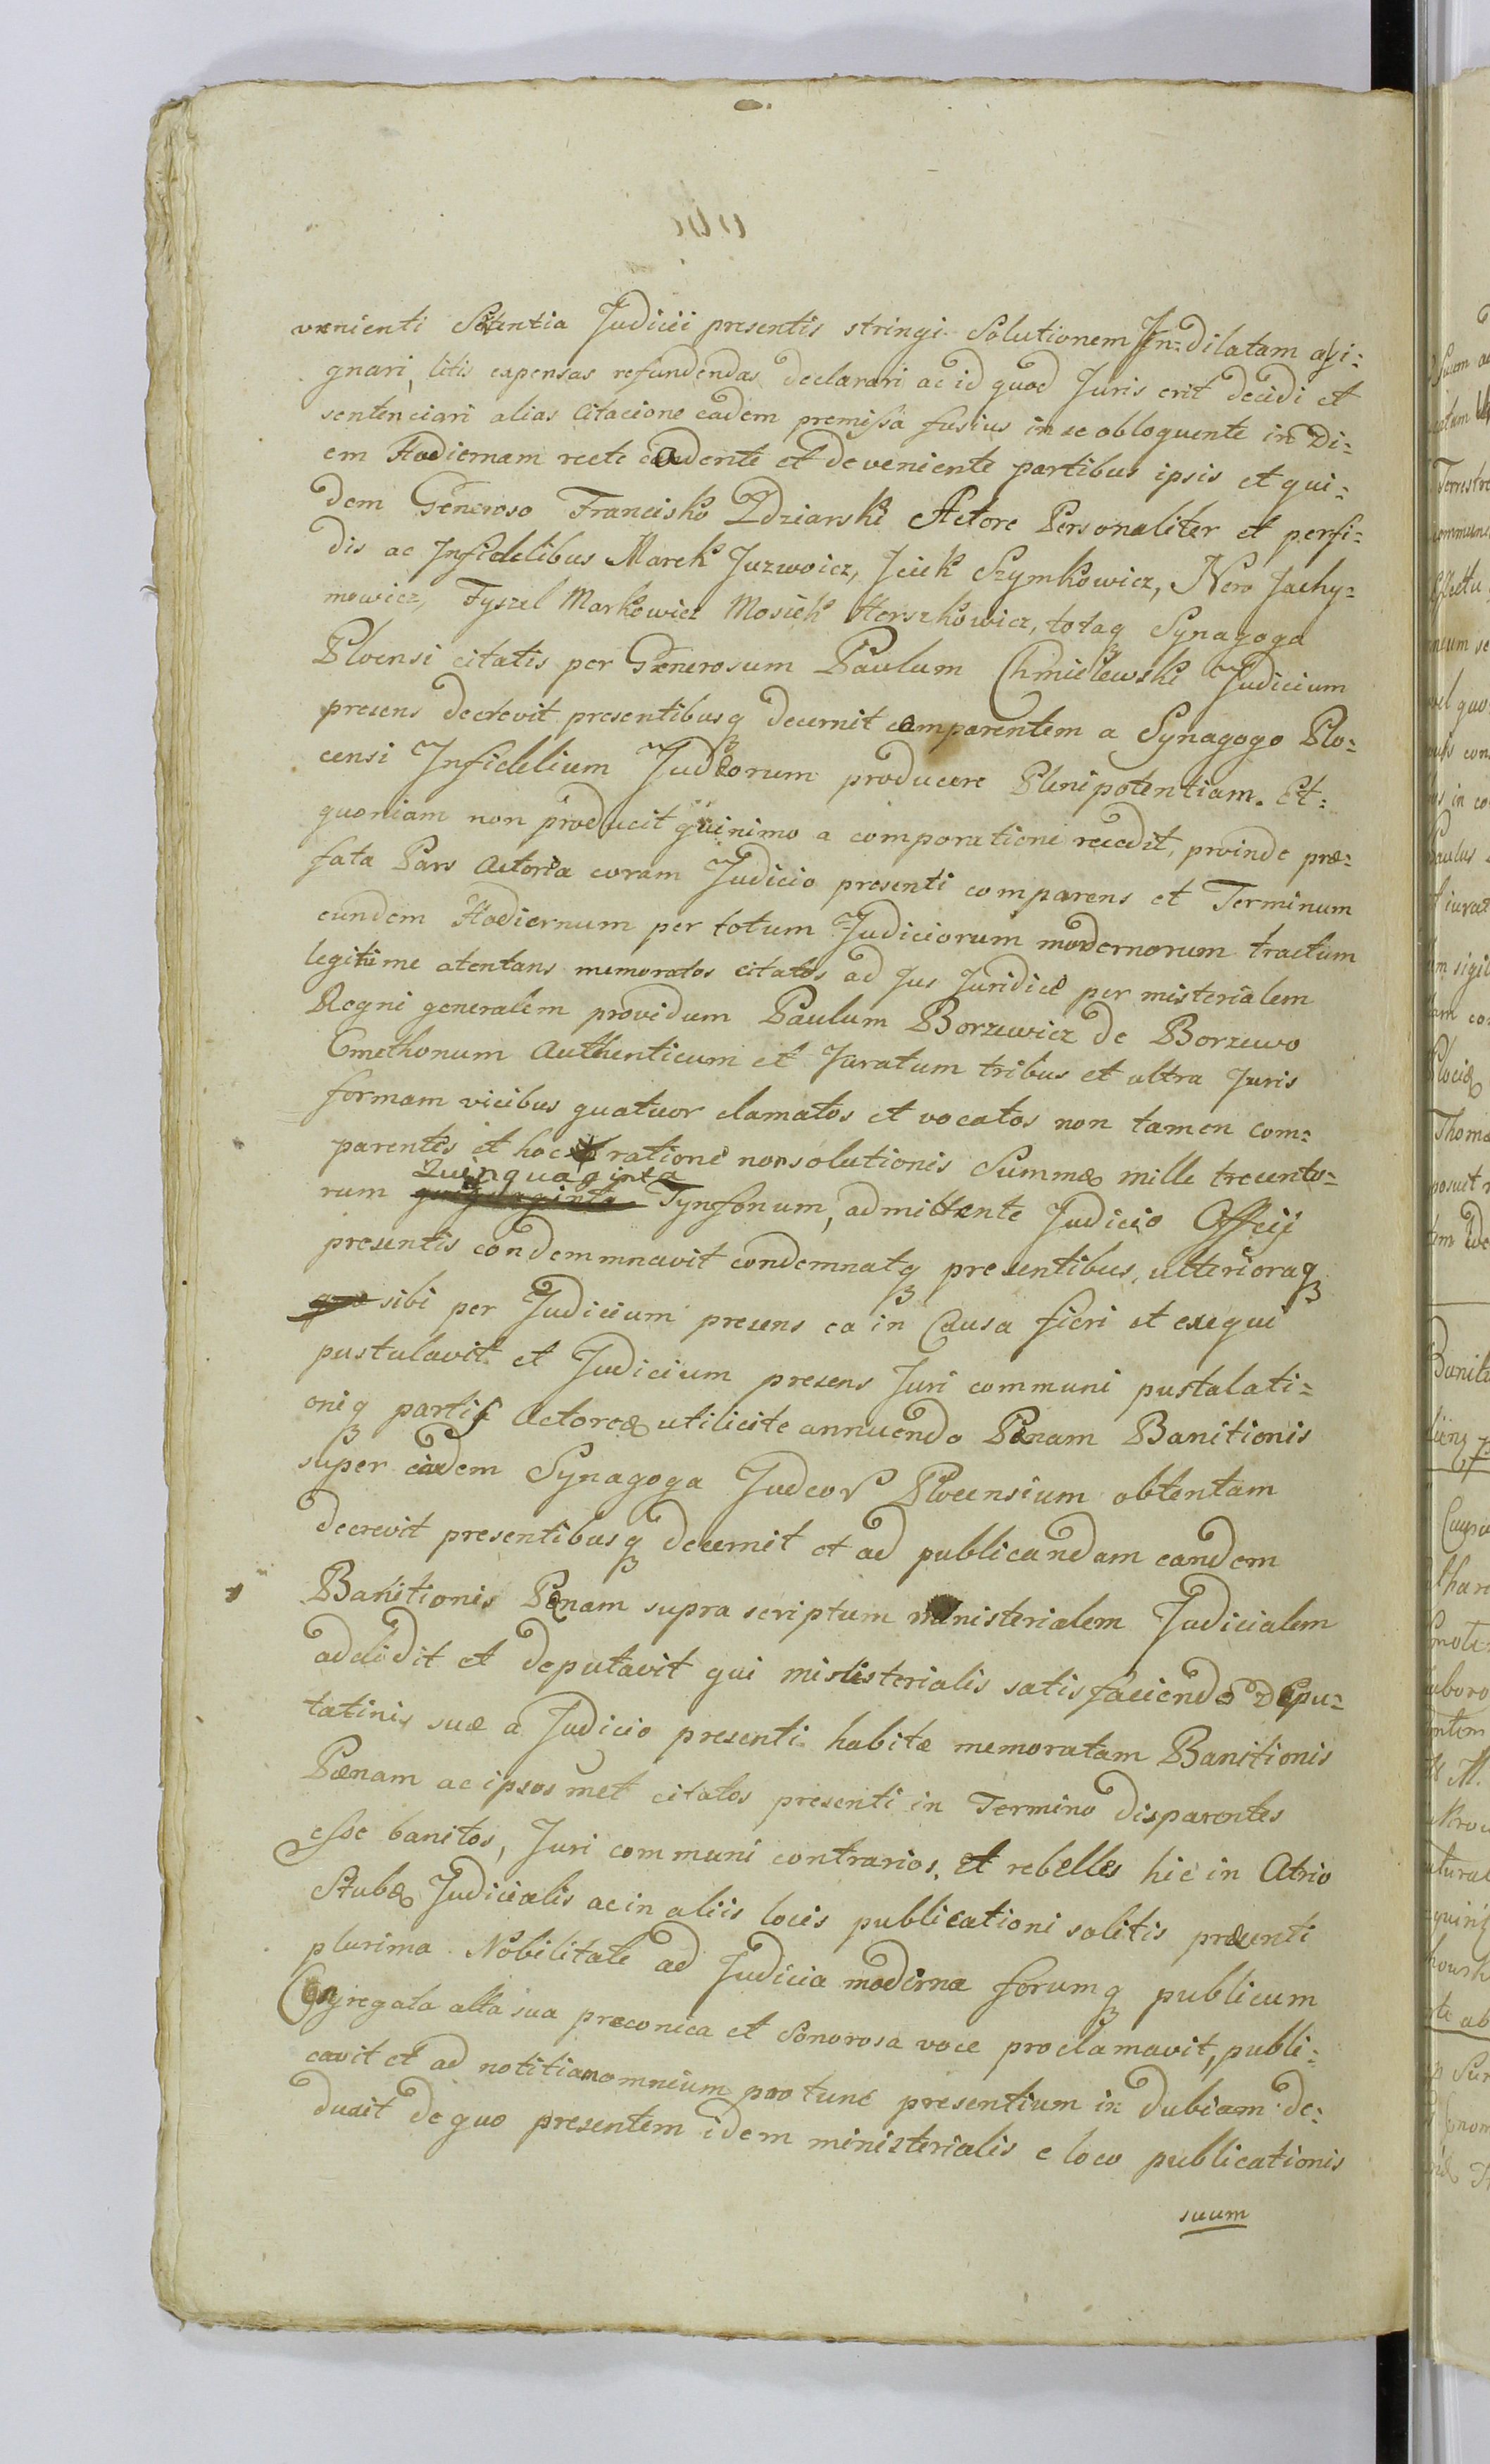 venienti Sententia Judicii presentis stringi Solutionem In=dilatam assi=
gnari, litis expensas refundendas declarari ac id quod Juris erit decidi et
sentenciari alias Citacione eadem premissa fusius in se obloquente in Di=
em Hodiernam recte cadente et deveniente partibus ipsis et qui=
dem Generoso Francisko Zdziarski Actore Personaliter et perfi=
dis ac Infidelibus Marek Juzwoicz, Jcick Szymkowicz, Nero Jachy=
mowicz, Fyszel Markowicz Mosiek Herszkowicz, totaq Synagoga
Plocnsi citatis per Generosum Paulum Chmielewski Judicium
presens decrevit presentibusq decernit comparentem a Synagogo Plo=
censi Infidelium Judeorum producere Plenipotentiam. Et=
quoniam non producit quinimo a comparatione recedit, proinde præ=
fata Pars Actorea coram Judicio presenti comparens et Terminum
eundem Hodiernum per totum Judiciorum modernorum tractum
legitime atentans memoratos citatos ad Jus Juridice per misterialem
Regni generalem providum Paulum Borzewicz de Borzewo
Cmethonum Authenticum et Juratum tribus et ultra Juris
formam vicibus quatuor clamatos et vocatos non tamen com=
parentes et hoc ratione nonsolutionis Summæ mille trecento=
Quinquaginta
rum Tynfonum, admittente Judicio Officij
presentis condemmnavit condemnatq presentibus, ulterioraq
sibi per Judicium presens ea in Causa fieri et exequi
pustulavit et Judicium presens Juri communi pustalati=
oniq partis Actoreæ utilicite annuendo Pænam Banitionis
super eadem Synagoga Judeor Plocensium obtentam
decrevit presentibusq decernit et ad publicandam eandem
Banitionis Pænam supra scriptum ministerialem Judicialem
addidit et deputavit qui misisterialis satisfaciendo Depu=
tatinis suæ a Judicio presenti habitæ memoratam Banitionis
Pænam ac ipsos met citatos presenti in Termino disparentes
esse banitos, Juri communi contrarios, Et rebelles hic in Atrio
Stubæ Judicialis ac in aliis locis publicationi solitis præsenti
plurima Nobilitate ad Judicia moderna forumq publicum
Congregata alta sua præconica et Sonorosa voce proclamavit, publi=
cavit et ad notitiam omneium pro tunc presentium in dubiam de=
duxit de quo presentem idem ministerialis e loco publicationis
suum